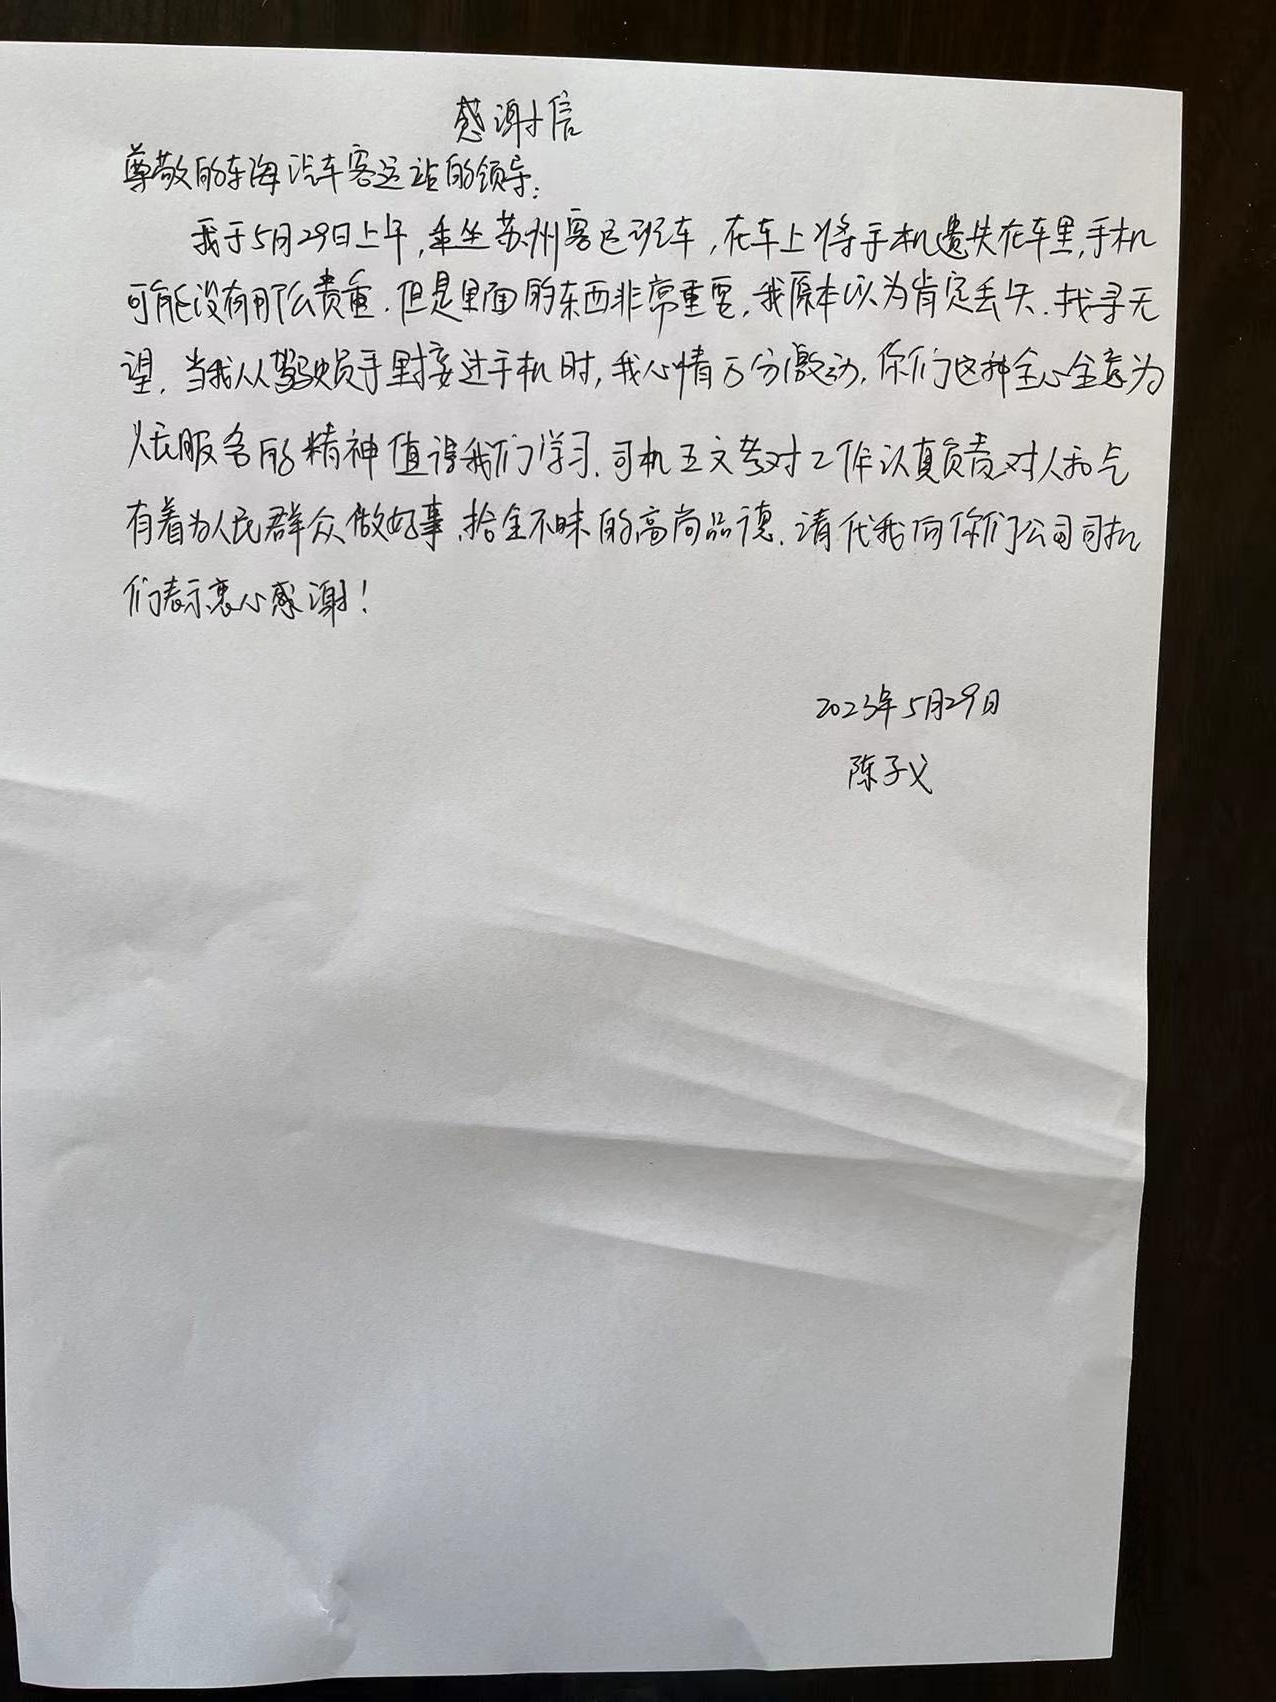 感谢信
尊敬的东海汽车客运站的领导:
我于5月29日上午,乘坐苏州客运班车,在车上将手机遗失在车里,手机
可能没有那么贵重.但是里面的东西非常重要,我原本以为肯定丢失.找寻无
望.当我从驾驶员手里接过手机时,我心情万分激动.你们这种全心全意为
人民服务的精神值得我们学习.司机王文考对工作认真负责对人和气
有着为人民群众做好事.拾金不昧的高尚品德.请代我向你们公司司机
们表示衷心感谢!
2023年5月29日
陈子